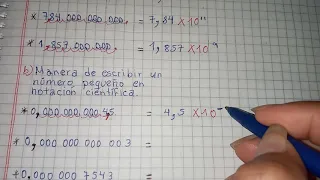 * 784.000.000.000, = 7,84 x10¹¹
* 1.857.000.000, = 1,857 x10⁹
b) Manera de escribir un
número, pequeño en
notación científica.
* 0,000.000.000.45 = 4,5 x10⁻
* 0,000 000 000 003 =
* 0,000 000 7543 =